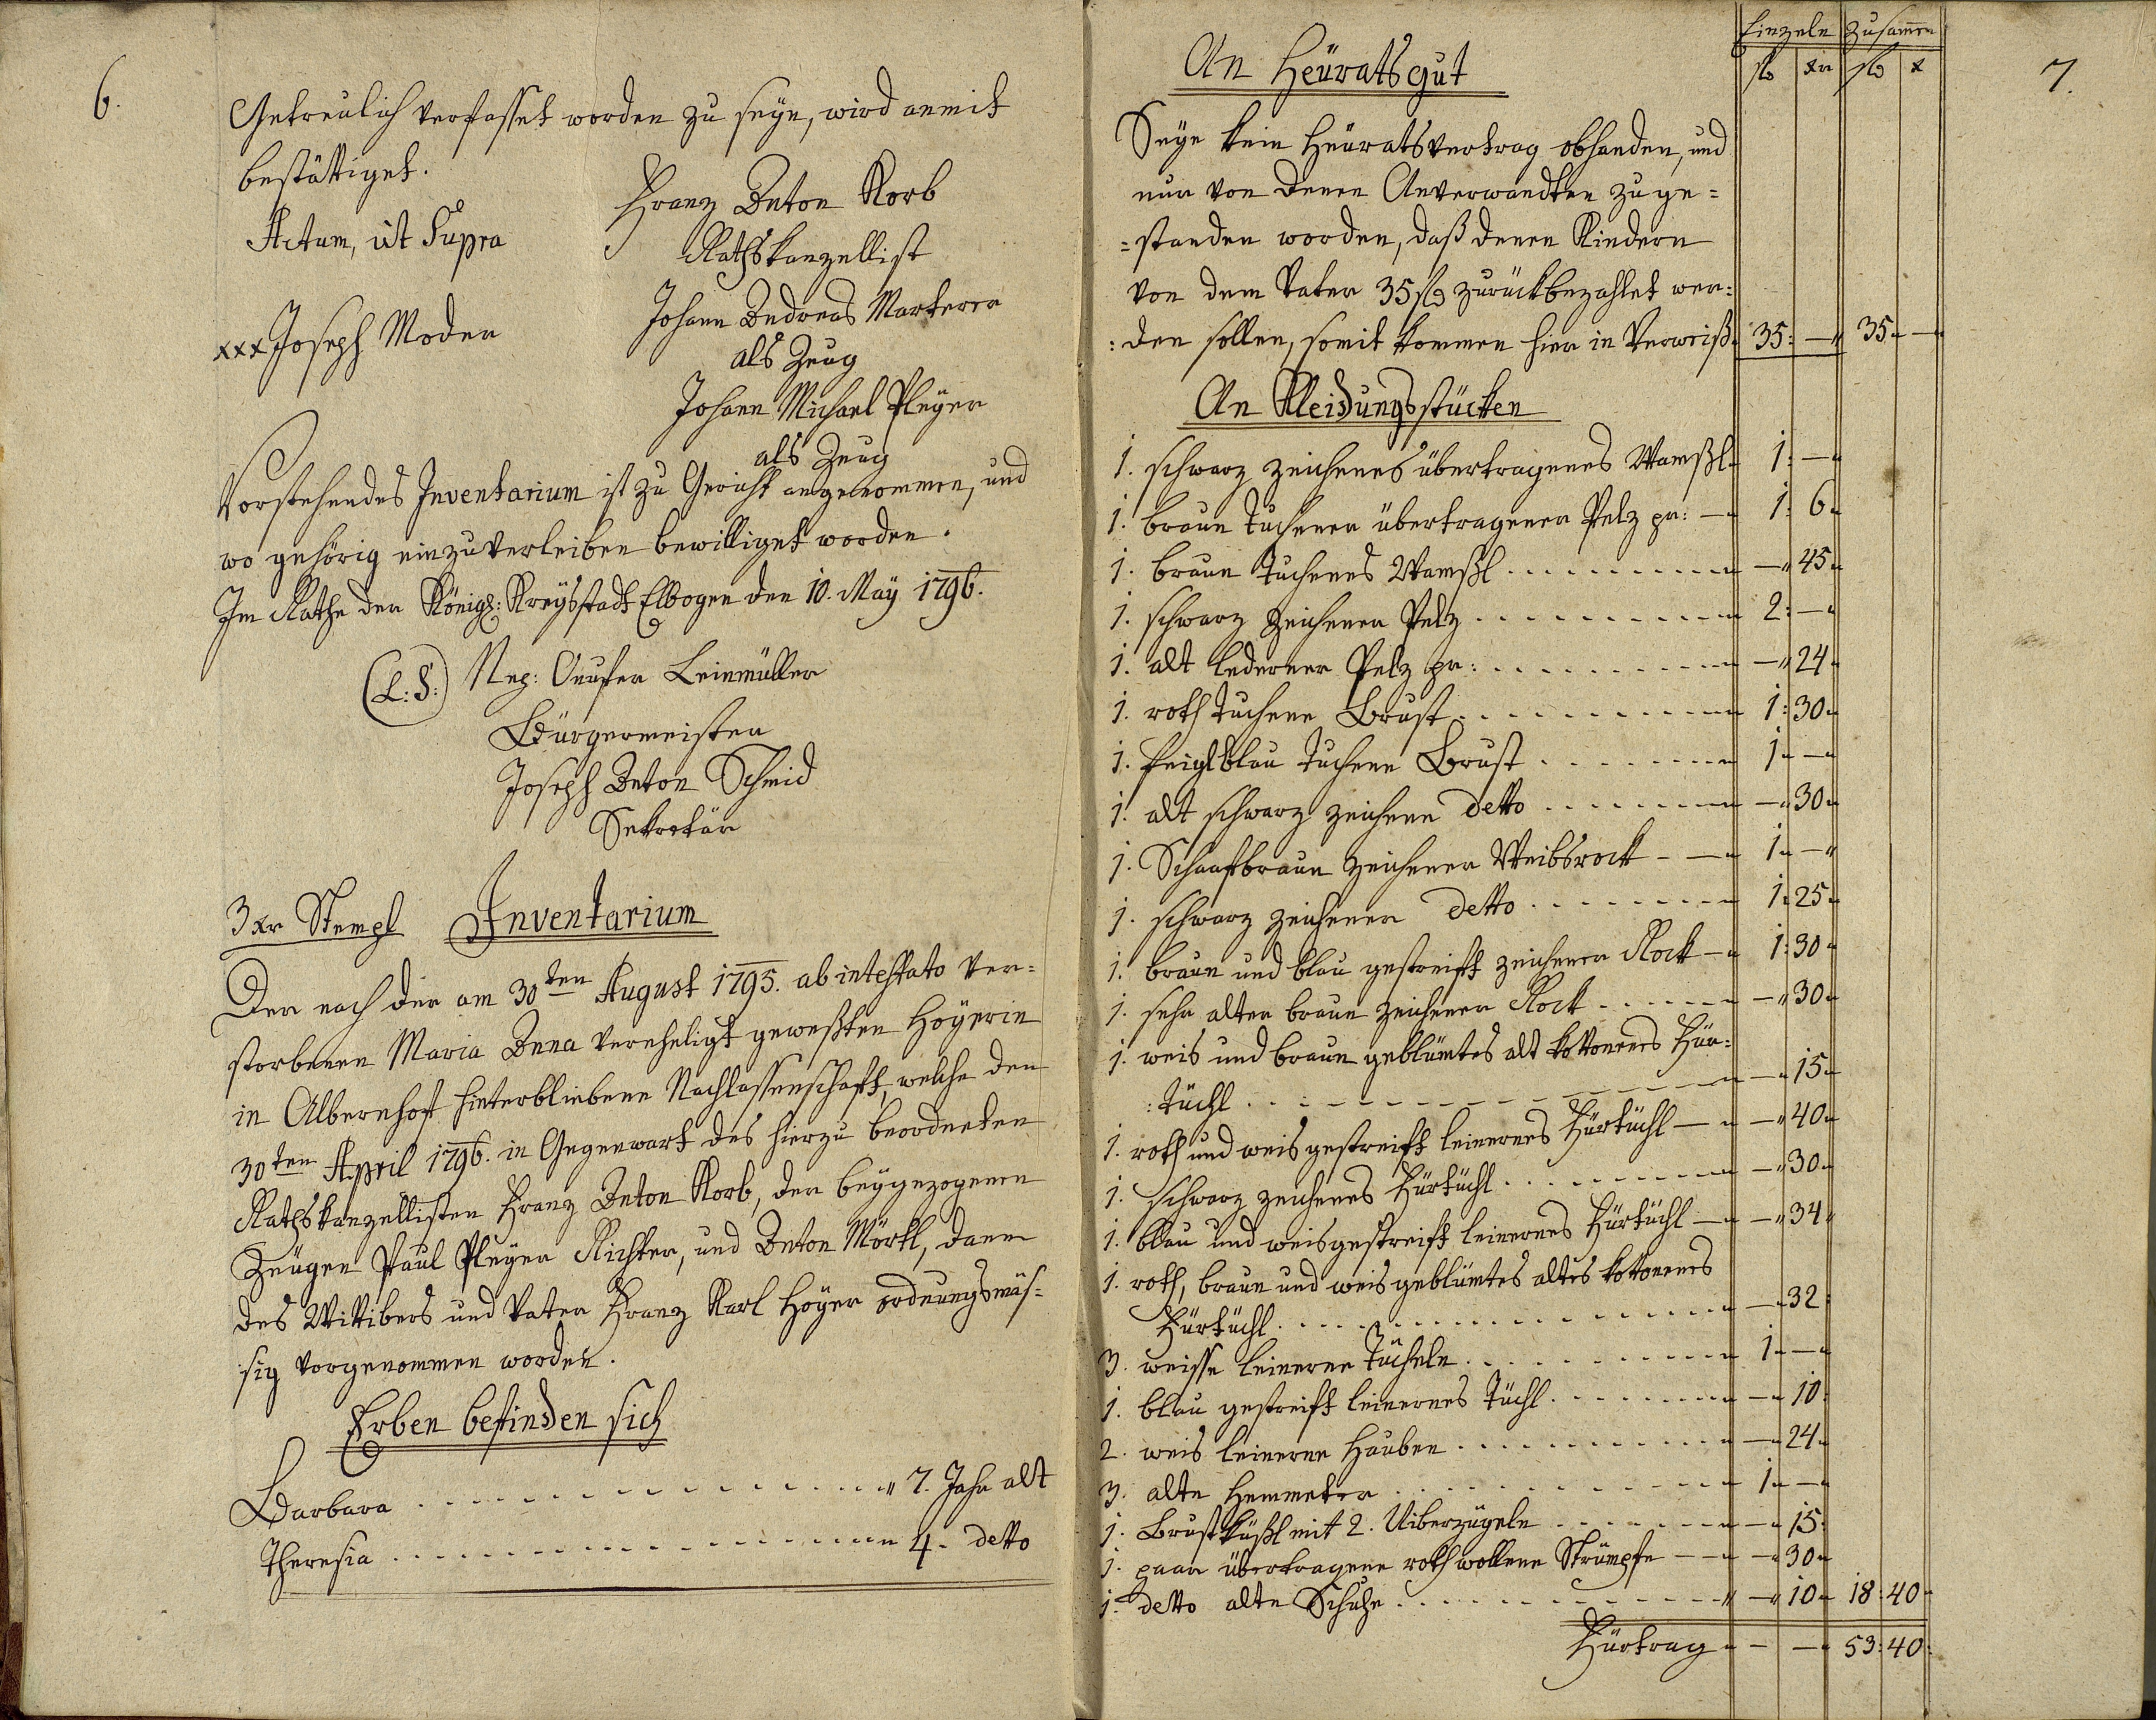 6.
Getreulich verfasset worden zu seyn, wird anmit
bestättiget.
Actum, ut Supra
Franz Anton Korb
Rathskanzellist
xxx Joseph Moder
Johann Andreas Marterer
als Zeug
Johann Michael Pleyer
als Zeug
Vorstehendes Inventarium ist zu Gericht angenommen, und
wo gehörig einzuverleiben bewilliget worden.
Im Rathe der Königl: Kreysstadt Elbogen den 10. May 1796.
(L:S:) Nep: Leinmüller
Bürgermeister
Joseph Anton Schmid
Sekretär
3 xr Stempl Inventarium
Der nach der am 30ten August 1795. ab intestato ver=
storbenen Maria Anna vereheligt geweßten Hoyerin
in Albernhof hinterbliebene Nachlassenschaft, welche den
30ten April 1796. in Gegenwart des hierzu beordneten
Rathskanzellisten Franz Anton Korb, der beygezogenen
Zeugen Paul Pleyer Richter, und Anton Mörtl, dann
des Wittibers und Vater Franz Karl Hoyer ordnungsmäs=
sig vorgenommen worden.
Erben befinden sich
Barbara . . . . . . . . 7. Jahr alt
Theresia . . . . . . . . 4. detto
7.
Einzeln Zusammen
fl xr fl x
An Heüratsgut
Seye kein Heüratsvertrag obhanden, und
nur von denen Anverwandten zu ge=
=standen worden, daß denen Kindern
von dem Vater 35 fl zurückbezahlet wer=
:den sollen, somit kommen hier in Verweiß 35: — 35 —
An Kleidungsstücken
1. schwarz zeichenes übertragenes Wamßl 1: —
1. braun tuchener übertragener Pelz pr: — 1: 6
1. braun tuchenes Wamßl . . . . . . — 45
1. schwarz zeichener Pelz . . . . . . 2: —
1. alt lederner Pelz pr: . . . . . . — 24
1. roth tuchene Brust . . . . . . 1: 30
1. feiglblau tuchene Brust . . . . . . 1 —
1. alt schwarz zeichene detto . . . . . . — 30
1. Schaafbraun zeichener Weibsrock — 1 —
1. schwarz zeichener detto . . . . . . 1: 25
1. braun und blau gestreift zeichener Rock — 1: 30
1. sehr alter braun zeichener Rock . . . . — 30
1. weis und braun geblümtes alt kottonenes Für=
:tüchl . . . . . . — 15
1. roth und weis gestreift leinernes Fürtüchl — — 40
1. schwarz zeichenes Fürtüchl . . . . . . — 30
1. blau und weis gestreift leinernes Fürtüchl — — 34
1. roth, braun und weis geblümtes altes kottonenes
Fürtüchl . . . . . . — 32:
3. weisse leinerne Tücheln . . . . . . 1 —
1. blau gestreift leinernes Tüchl . . . . . . — 10:
2. weis leinerne Hauben . . . . . . — 24
3. alte Hemmeter . . . . . . 1 —
1. Brustküßl mit 2. Uiberzügeln . . . . — 15:
1. paar übertragene roth wollene Strümpfe — — 30
1. detto alte Schuhe . . . . . . — 10 18: 40
Fürtrag — — 53: 40: